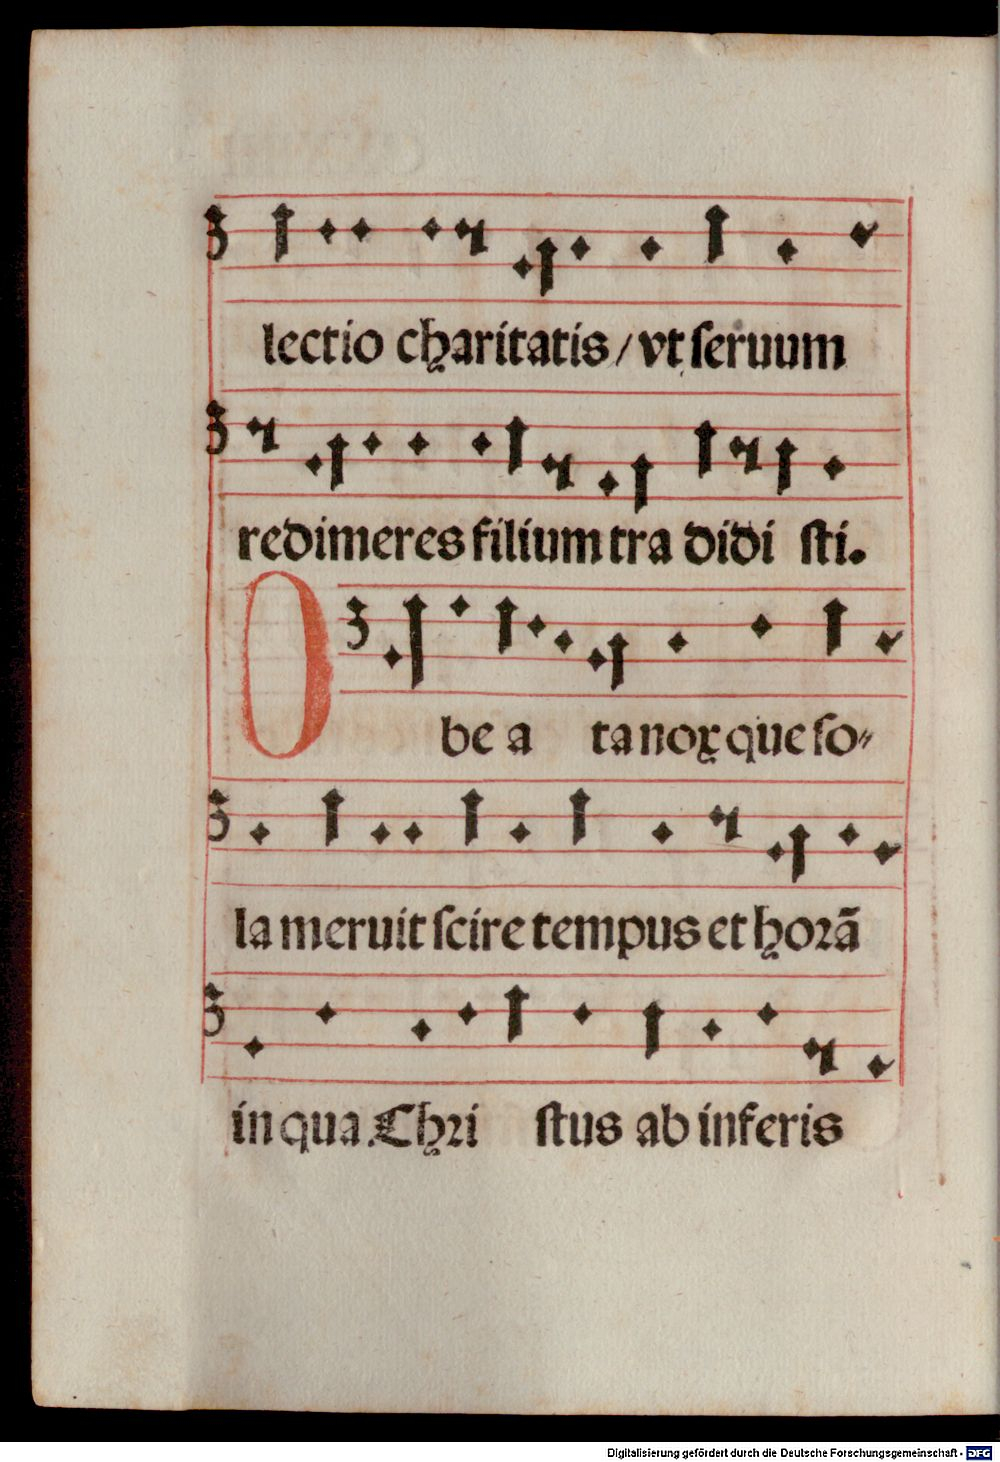 lectio charitatis / vt seruum
redimeres filium tra didi sti.
O be a ta nox que so⸗
la meruit scire tempus et horã
in qua Chri stus ab inferis
Digitalisierung gefördert durch die Deutsche Forschungsgemeinschaft - DFG